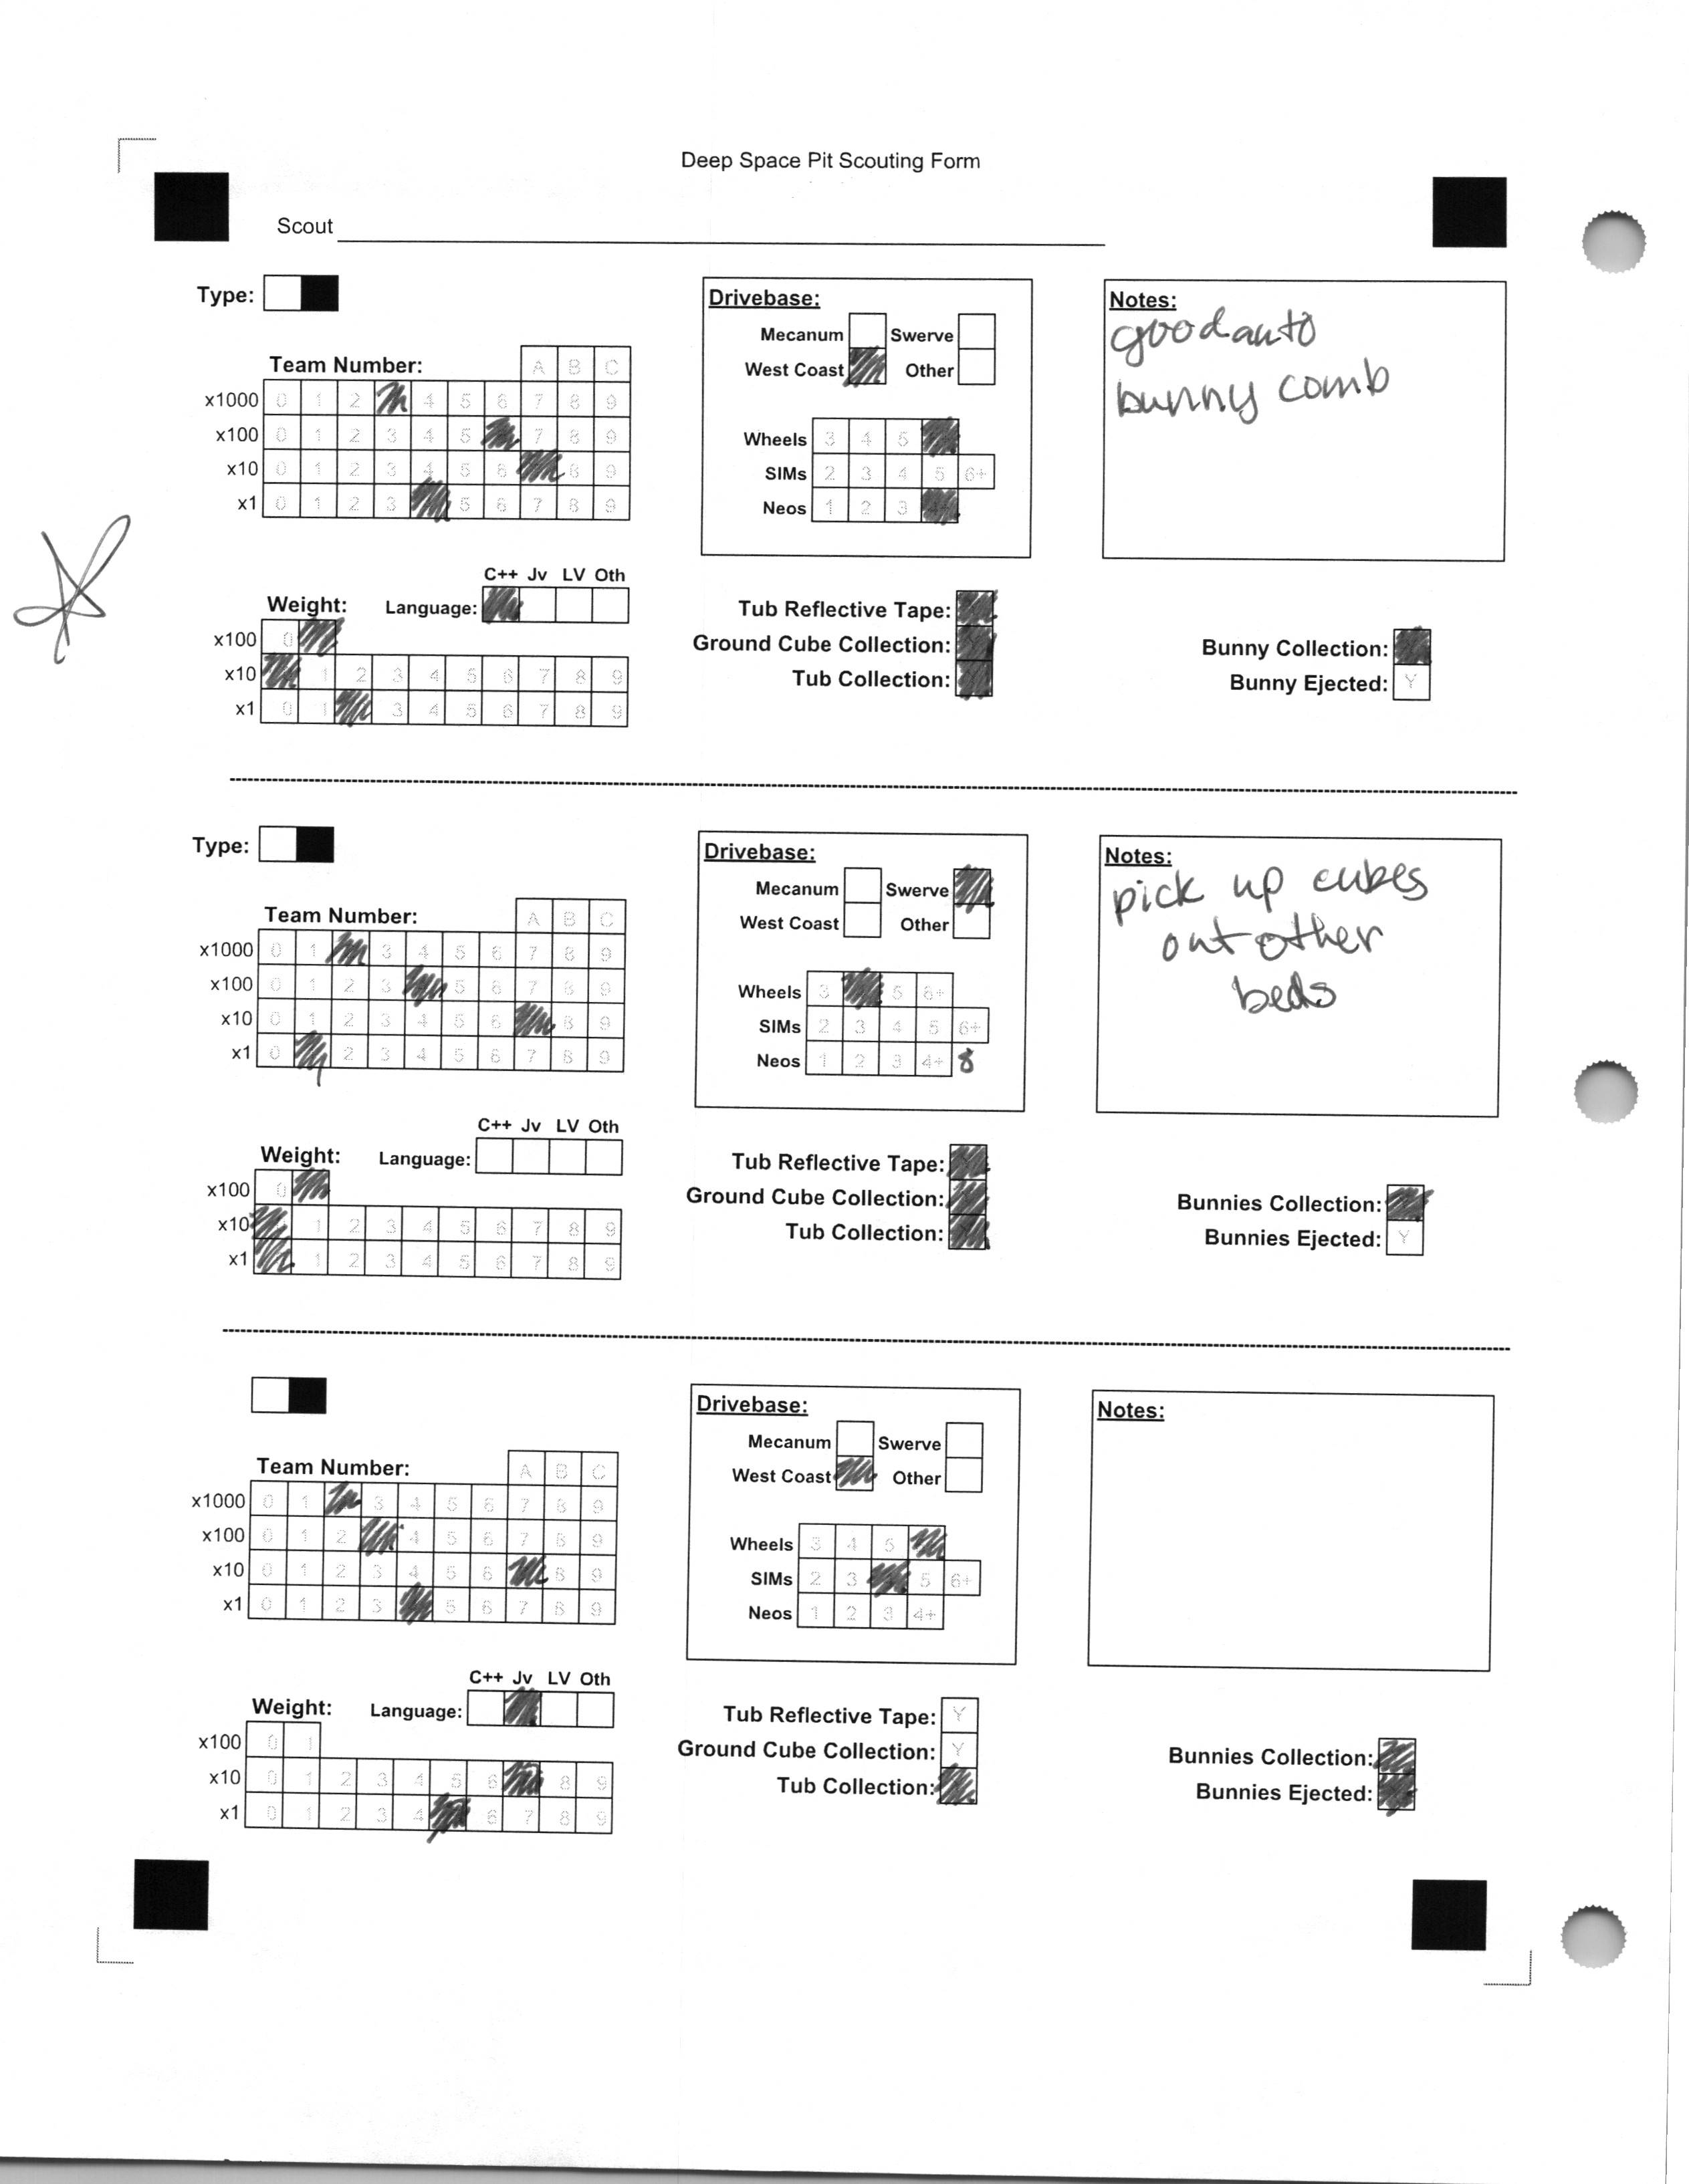 Deep Space Pit Scouting Form
Scout
Type:
Team Number:
A B C
x1000 0 1 2 4 5 6 7 8 9
x100 0 1 2 3 4 5 7 8 9
x10 0 1 2 3 4 5 6 8 9
x1 0 1 2 3 5 6 7 8 9
C++ Jv LV Oth
Weight: Language:
x100 0
x10 1 2 3 4 5 6 7 8 9
x1 0 1 3 4 5 6 7 8 9
Drivebase:
Mecanum Swerve
West Coast Other
Wheels 3 4 5
SIMs 2 3 4 5 6+
Neos 1 2 3
Tub Reflective Tape:
Ground Cube Collection:
Tub Collection:
Notes:
good auto
bunny comb
Bunny Collection:
Bunny Ejected: Y
Type:
Team Number:
A B C
x1000 0 1 3 4 5 6 7 8 9
x100 0 1 2 3 5 6 7 8 9
x10 0 1 2 3 4 5 6 8 9
x1 0 2 3 4 5 6 7 8 9
C++ Jv LV Oth
Weight: Language:
x100 0
x10 1 2 3 4 5 6 7 8 9
x1 1 2 3 4 5 6 7 8 9
Drivebase:
Mecanum Swerve
West Coast Other
Wheels 3 5 6+
SIMs 2 3 4 5 6+
Neos 1 2 3 4+ 8
Tub Reflective Tape:
Ground Cube Collection:
Tub Collection:
Notes:
pick up cubes
out other
beds
Bunnies Collection:
Bunnies Ejected: Y
Team Number:
A B C
x1000 0 1 3 4 5 6 7 8 9
x100 0 1 2 4 5 6 7 8 9
x10 0 1 2 3 4 5 6 8 9
x1 0 1 2 3 5 6 7 8 9
C++ Jv LV Oth
Weight: Language:
x100 0 1
x10 0 1 2 3 4 5 6 8 9
x1 0 1 2 3 4 6 7 8 9
Drivebase:
Mecanum Swerve
West Coast Other
Wheels 3 4 5
SIMs 2 3 5 6+
Neos 1 2 3 4+
Tub Reflective Tape: Y
Ground Cube Collection: Y
Tub Collection:
Notes:
Bunnies Collection:
Bunnies Ejected: